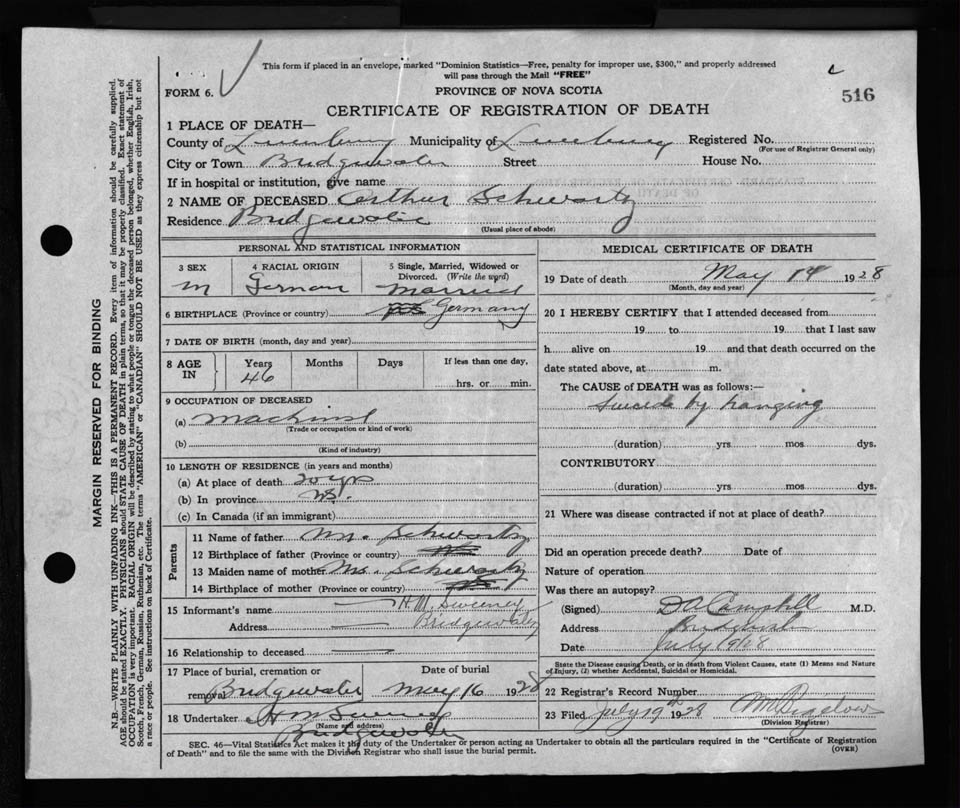 This form if placed in an envelope, marked "Dominion Statistics—Free, penalty for improper use, $300," and properly addressed
will pass through the Mail "FREE"
FORM 6.
PROVINCE OF NOVA SCOTIA
516
CERTIFICATE OF REGISTRATION OF DEATH
1 PLACE OF DEATH—
County of Lunenburg Municipality of Lunenburg Registered No.
(For use of Registrar General only)
City or Town Bridgewater Street House No.
If in hospital or institution, give name
2 NAME OF DECEASED Arthur Schwartz
Residence Bridgewater
(Usual place of abode)
PERSONAL AND STATISTICAL INFORMATION
3 SEX
M
4 RACIAL ORIGIN
German
5 Single, Married, Widowed or
Divorced. (Write the word)
Married
6 BIRTHPLACE (Province or country) Germany
7 DATE OF BIRTH (month, day and year)
8 AGE
IN
Years
46
Months
Days
If less than one day,
hrs. or min.
9 OCCUPATION OF DECEASED
(a) Machinist
(Trade or occupation or kind of work)
(b)
(Kind of industry)
10 LENGTH OF RESIDENCE (in years and months)
(a) At place of death 20 yrs
(b) In province
(c) In Canada (if an immigrant)
Parents
11 Name of father Mr. Schwartz
12 Birthplace of father (Province or country)
13 Maiden name of mother Ms. Schwartz
14 Birthplace of mother (Province or country)
15 Informant's name H M Sweeney
Address Bridgewater
16 Relationship to deceased
17 Place of burial, cremation or
removal Bridgewater
Date of burial
May 16 1928
18 Undertaker H M Sweeney
(Name and address)
Bridgewater
MEDICAL CERTIFICATE OF DEATH
19 Date of death May 14 1928
(Month, day and year)
20 I HEREBY CERTIFY that I attended deceased from
19 to 19 that I last saw
h alive on 19 and that death occurred on the
date stated above, at m.
The CAUSE of DEATH was as follows:—
Suicide by hanging
(duration) yrs mos dys.
CONTRIBUTORY
(duration) yrs mos dys.
21 Where was disease contracted if not at place of death?
Did an operation precede death? Date of
Nature of operation
Was there an autopsy?
(Signed) D A Campbell M.D.
Address
Date July 19/28
State the Disease causing Death, or in death from Violent Causes, state (1) Means and Nature
of Injury, (2) whether Accidental, Suicidal or Homicidal.
22 Registrar's Record Number
23 Filed July 19th 1928
(Division Registrar)
SEC. 46—Vital Statistics Act makes it the duty of the Undertaker or person acting as Undertaker to obtain all the particulars required in the "Certificate of Registration
of Death" and to file the same with the Division Registrar who shall issue the burial permit.
(OVER)
MARGIN RESERVED FOR BINDING
N.B.—WRITE PLAINLY WITH UNFADING INK—THIS IS A PERMANENT RECORD. Every item of information should be carefully supplied.
AGE should be stated EXACTLY. PHYSICIANS should STATE CAUSE OF DEATH in plain terms, so that it may be properly classified. Exact statement of
OCCUPATION is very important. RACIAL ORIGIN will be described by stating to what people or tongue the deceased person belonged, whether English, Irish,
Scotch, French, German, Russian, Ruthenian, etc. The terms "AMERICAN" or "CANADIAN" SHOULD NOT BE USED as they express citizenship but not
a race or people. See instructions on back of Certificate.